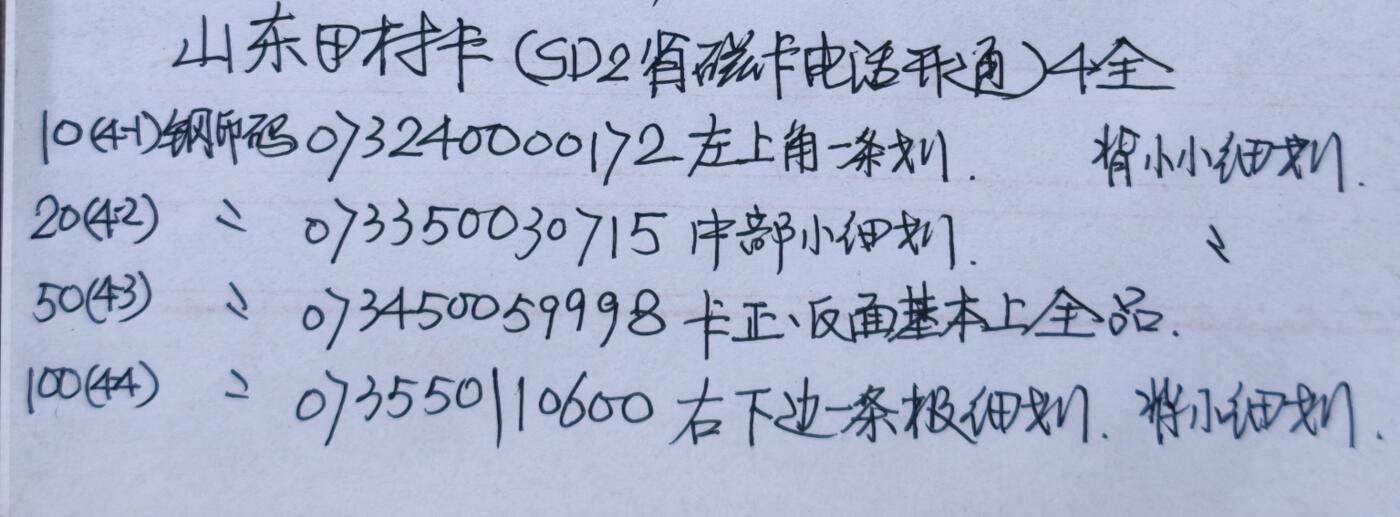 山东田村卡(SD2省磁卡电话开通)4全
10(4-1)钢印码 073240000172 左上角一条划. 背小小细划.
20(4-2) 〃 073350030715 中部小细划. 〃
50(4-3) 〃 073450059998 卡正、反面基本上全品.
100(4-4) 〃 073550110600 右下边一条极细划. 背小细划.